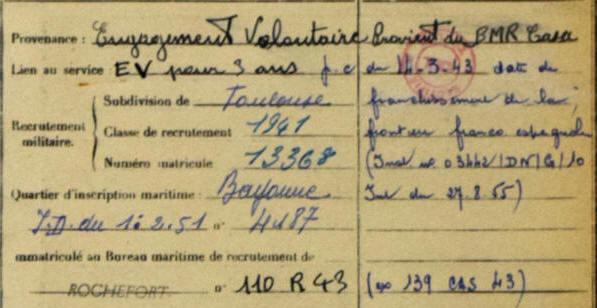 Provenance : Engagement Volontaire Provient du BMR Casa
Lien au service : EV pour 3 ans j.c du 14-3.43 date de
franchissement de la
frontière franco espagnole
(Inst. n° 03442/DN/G/10
Int du 27.8.55)
Recrutement militaire.
Subdivision de Toulouse
Classe de recrutement 1941
Numéro matricule 13368
Quartier d'inscription maritime : Bayonne
du 10.2.51 n° 4187
immatriculé au Bureau maritime de recrutement de
ROCHEFORT. n° 110 R 43 (ex 139 CAS 43)